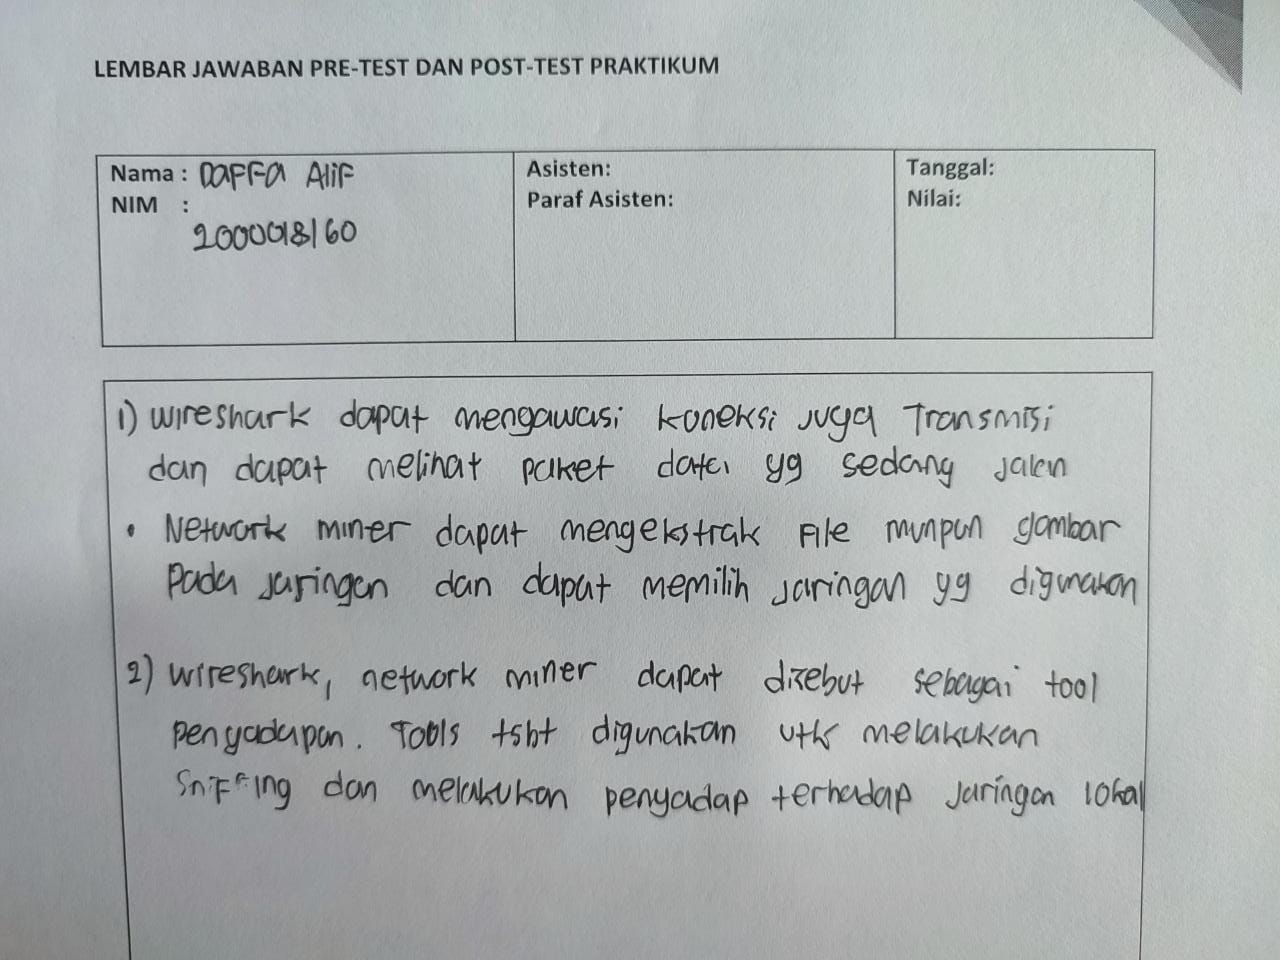 LEMBAR JAWABAN PRE-TEST DAN POST-TEST PRAKTIKUM
Nama : DAFFA Alif
NIM :
2000018160
Asisten:
Paraf Asisten:
Tanggal:
Nilai:
1) wireshark dapat mengawasi koneksi juga Transmisi
dan dapat melihat paket data yg sedang jalan
• Network miner dapat mengekstrak file munpun gambar
Pada jaringan dan dapat memilih jaringan yg digunakan
2) wireshark, network miner dapat disebut sebagai tool
penyadapan. Tools tsbt digunakan utk melakukan
Sniffing dan melakukan penyadap terhadap jaringan lokal